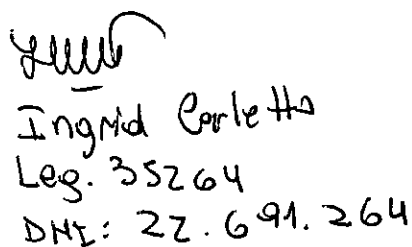 Ingrid Carletto
Leg. 35264
DNI: 22.691.264